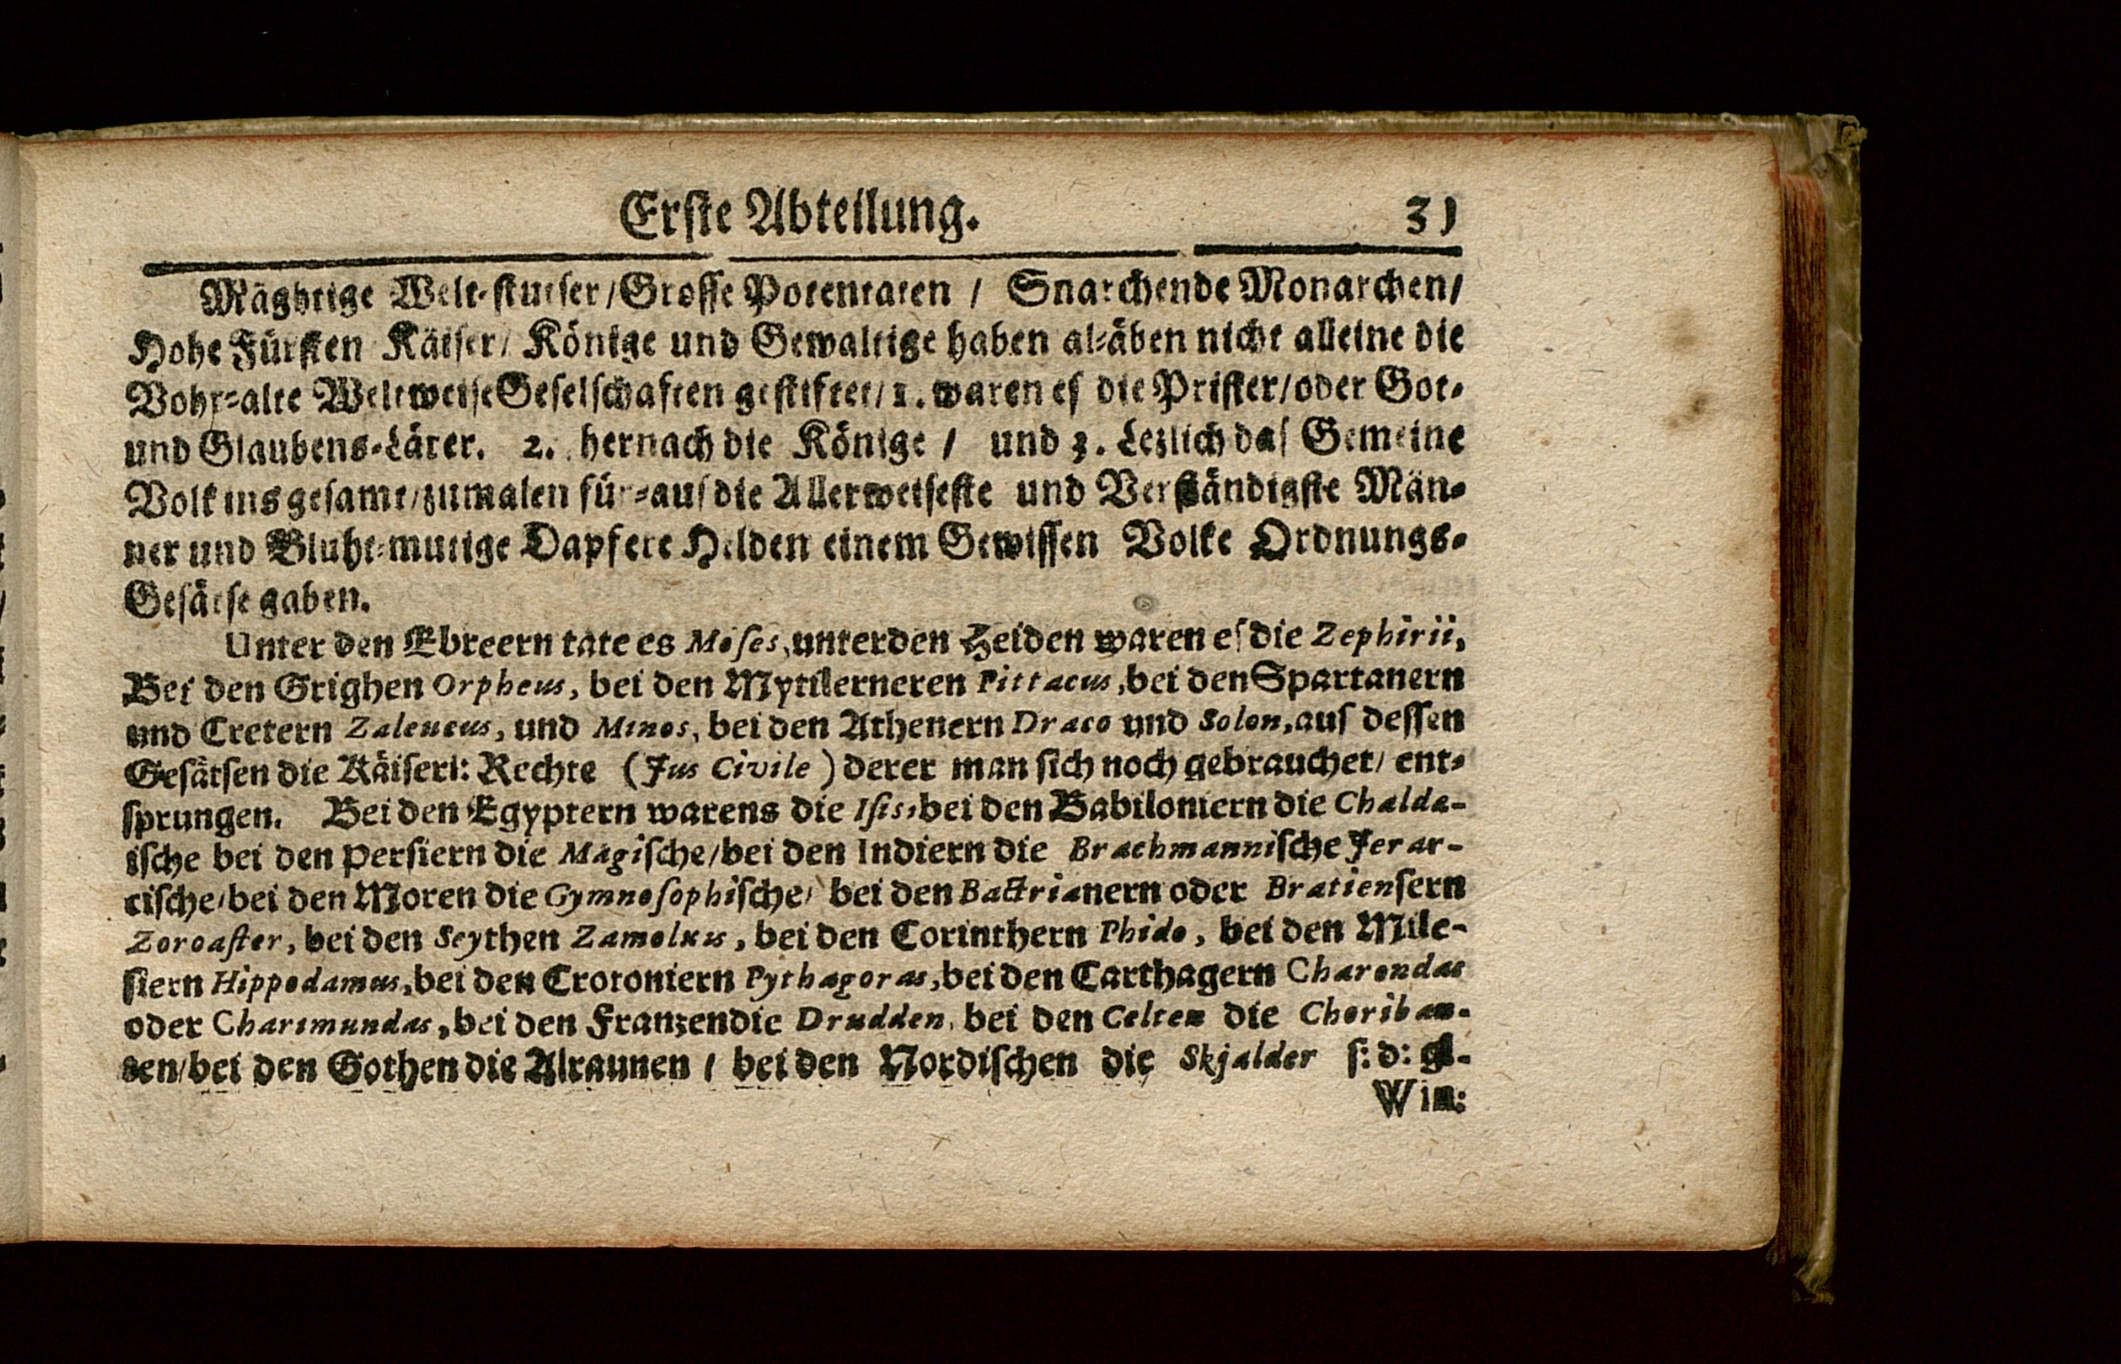 Erste Abteilung. 31
Mäghtige Welt-stutser/Grosse Potentaten / Snarchende Monarchen/
Hohe Fürsten Käiser/ Könige und Gewaltige haben al-äben nicht alleine die
Vohr-alte Weltweise Geselschaften gestiftet/1. waren es die Prister/oder Got-
und Glaubens-Lärer. 2. hernach die Könige / und 3. Letzlich das Gemeine
Volk ins gesamt/zumalen für-aus die Allerweiseste und Verständigste Män-
ner und Bluht-mutige Dapfere Helden einem Gewissen Volke Ordnungs-
Gesätse gaben.
Unter den Ebreern tate es Moses, unter den Heiden waren es die Zephirii,
Bei den Grighen Orpheus, bei den Mytilerneren Pittacus, bei den Spartanern
und Cretern Zaleucus, und Minos, bei den Athenern Draco und Solon, aus dessen
Gesätsen die Käiserl: Rechte (Jus Civile) derer man sich noch gebrauchet/ ent-
sprungen. Bei den Egyptern warens die Isis, bei den Babiloniern die Chalda-
ische bei den Persiern die Magische/bei den Indiern die Brachmannische Jerar-
cische/bei den Moren die Gymnosophische/ bei den Bactrianern oder Bratiensern
Zoroaster, bei den Scythen Zamolxis, bei den Corinthern Phido, bei den Mile-
siern Hippodamus, bei den Crotoniern Pythagoras, bei den Carthagern Charondas
oder Charimundas, bei den Franzen die Drudden, bei den Celten die Choriban-
ten/bei den Gothen die Alraunen / bei den Nordischen die Skjalder s: d: gl-
Win: